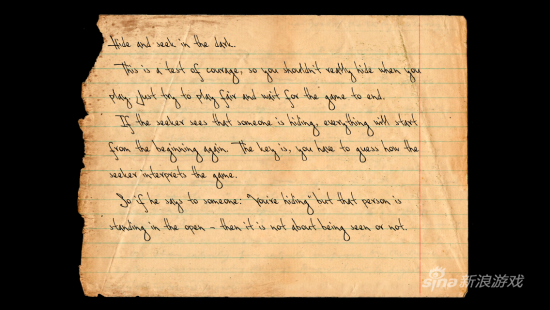 Hide and seek in the dark.
This is a test of courage, so you shouldn't really hide when you
play, just try to play fair and wait for the game to end.
If the seeker sees that someone is hiding, everything will start
from the beginning again. The key is, you have to guess how the
seeker interprets the game.
So if he says to someone: "You're hiding" but that person is
standing in the open - then it is not about being seen or not.
sina新浪游戏